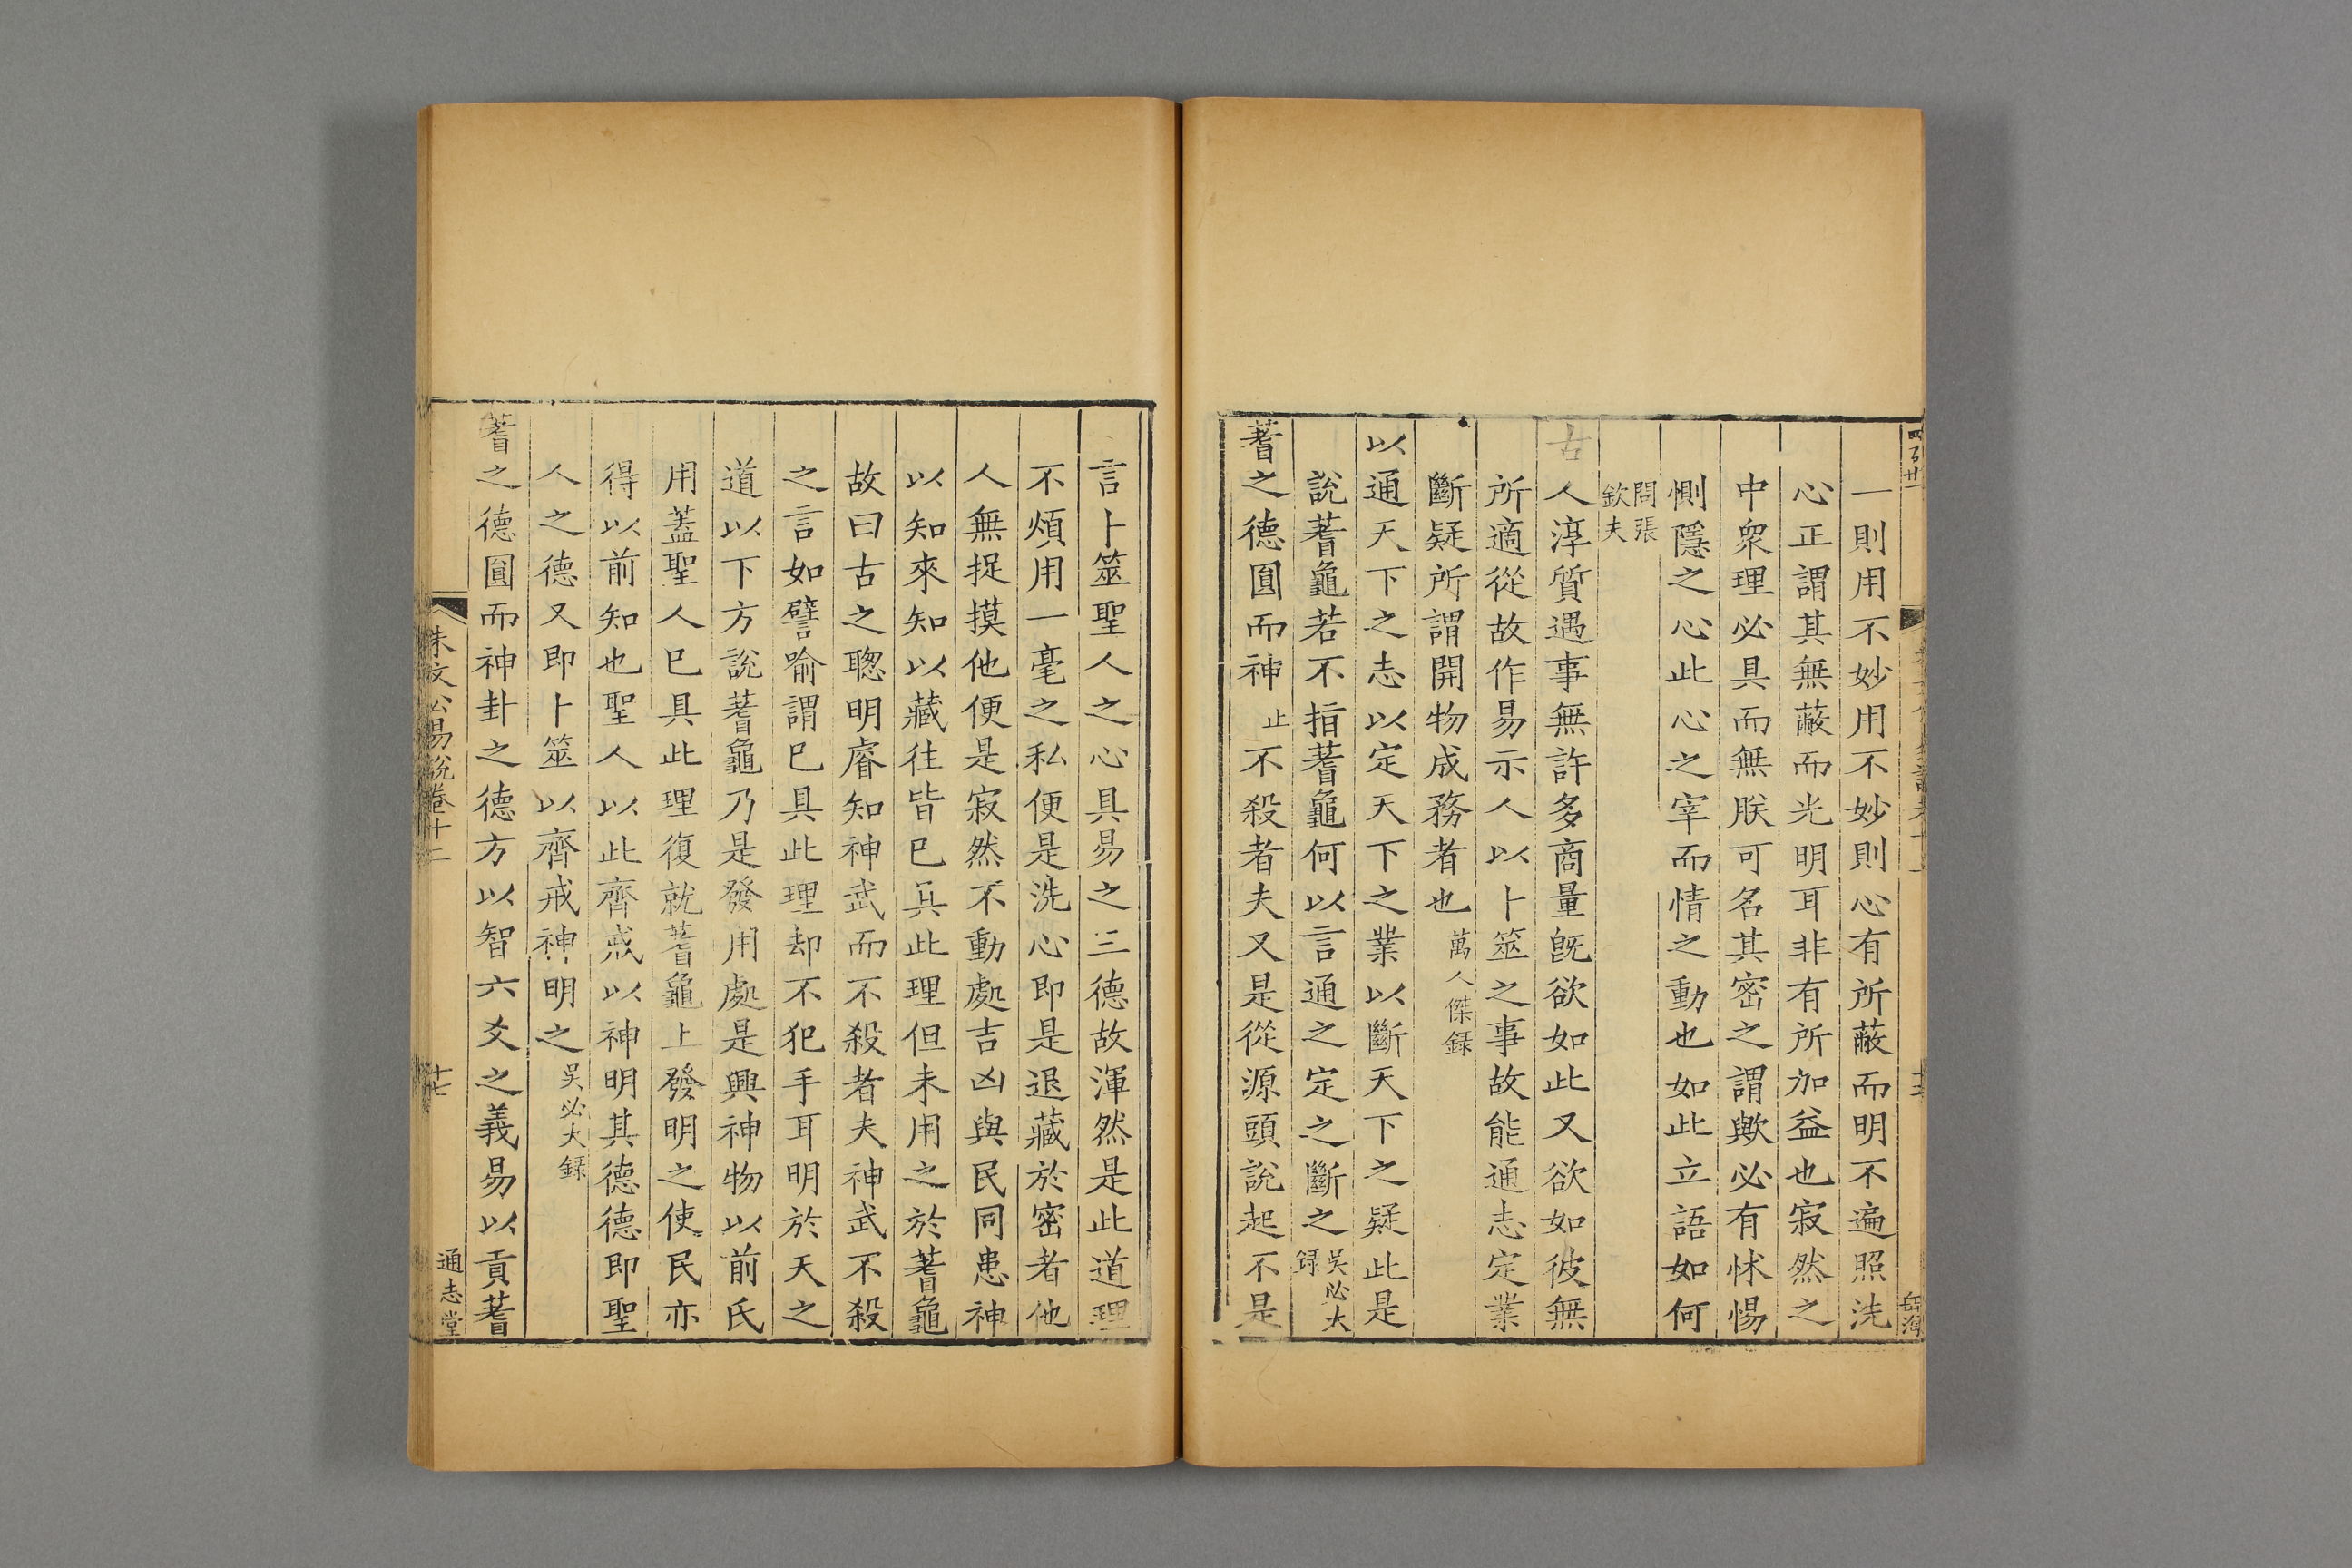 四百廿
一則用不妙用不妙則心有所蔽而明不遍照洗
心正謂其無蔽而光明耳非有所加益也寂然之
中衆理必具而無朕可名其密之謂歟必有怵惕
惻隱之心此心之宰而情之動也如此立語如何
問張
欽夫
古人淳質遇事無許多商量旣欲如此又欲如彼無
所適從故作易示人以卜筮之事故能通志定業
斷疑所謂開物成務者也萬人傑録
以通天下之志以定天下之業以斷天下之疑此是
說蓍龜若不指蓍龜何以言通之定之斷之吳必大録
蓍之德圓而神止不殺者夫又是從源頭說起不是
言卜筮聖人之心具易之三德故渾然是此道理
不煩用一毫之私便是洗心即是退藏於密者他
人無捉摸他便是寂然不動處吉凶與民同患神
以知來知以藏往皆已具此理但未用之於蓍龜
故曰古之聰明睿知神武而不殺者夫神武不殺
之言如譬喻謂已具此理却不犯手耳明於天之
道以下方說蓍龜乃是發用處是興神物以前民
用蓋聖人已具此理復就蓍龜上發明之使民亦
得以前知也聖人以此齊戒以神明其德德即聖
人之德又即卜筮以齊戒神明之吳必大録
蓍之德圓而神卦之德方以智六爻之義易以貢蓍
朱文公易說卷十二
十七
通志堂